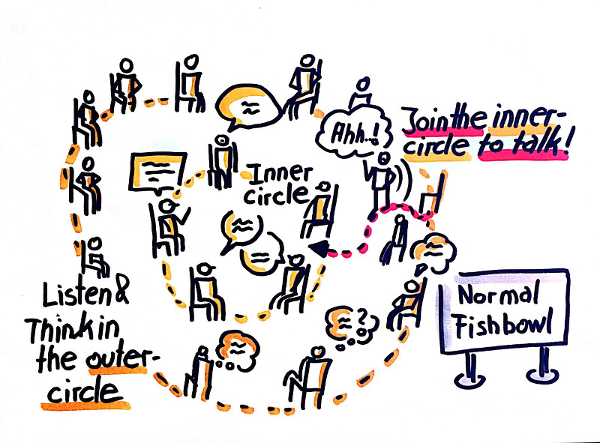 Ahh..!
Join the inner-
circle to talk!
Inner
circle
?
Listen &
Think in
the outer-
circle
Normal
Fishbowl